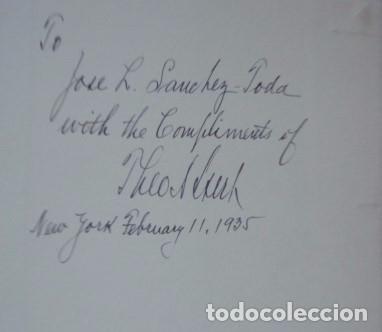 To
Jose L. Sanchez-Toda
with the Compliments of
New York February 11, 1935
todocoleccion.net